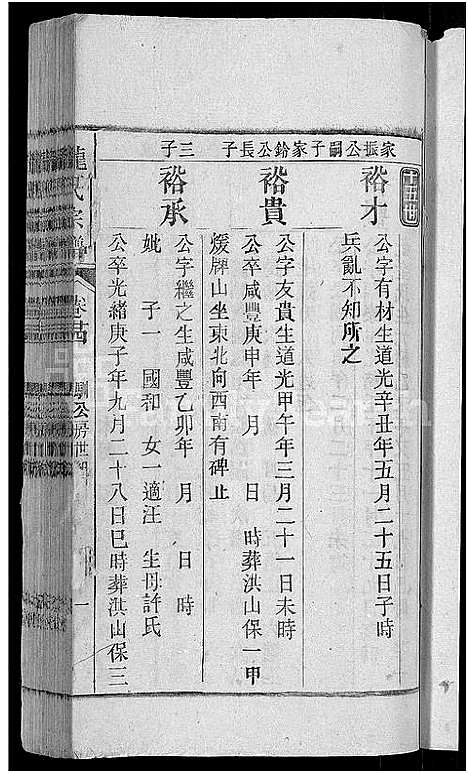 十五世
家振公嗣子
裕才
公字有材生道光辛丑年五月二十五日子時
兵亂不知所之
家鈴公長子
裕貴
公字友貴生道光甲午年三月二十一日未時
公卒咸豐庚申年 月 日 時葬洪山保一甲
煖牌山坐東北向西南有碑止
三子
裕承
公字繼之生咸豐乙卯年 月 日 時
妣 子一 國和 女一適汪 生母許氏
公卒光緒庚子年九月二十八日巳時葬洪山保三
龍氏宗譜
卷
公房世
一